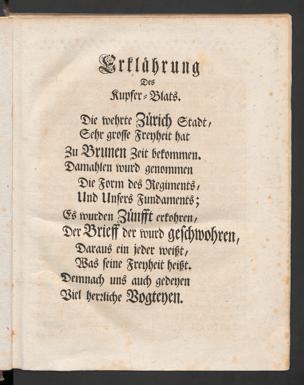 Erklährung
Des
Kupfer-Blats.
Die wehrte Zürich Stadt,
Sehr grosse Freyheit hat
Zu Brunen Zeit bekommen.
Damahlen wurd genommen
Die Form des Regiments,
Und Unsers Fundaments;
Es wurden Zünfft erkohren,
Der Brieff der wurd geschwohren,
Daraus ein jeder weißt,
Was seine Freyheit heißt.
Demnach uns auch gedeyen
Viel herzliche Vogteyen.